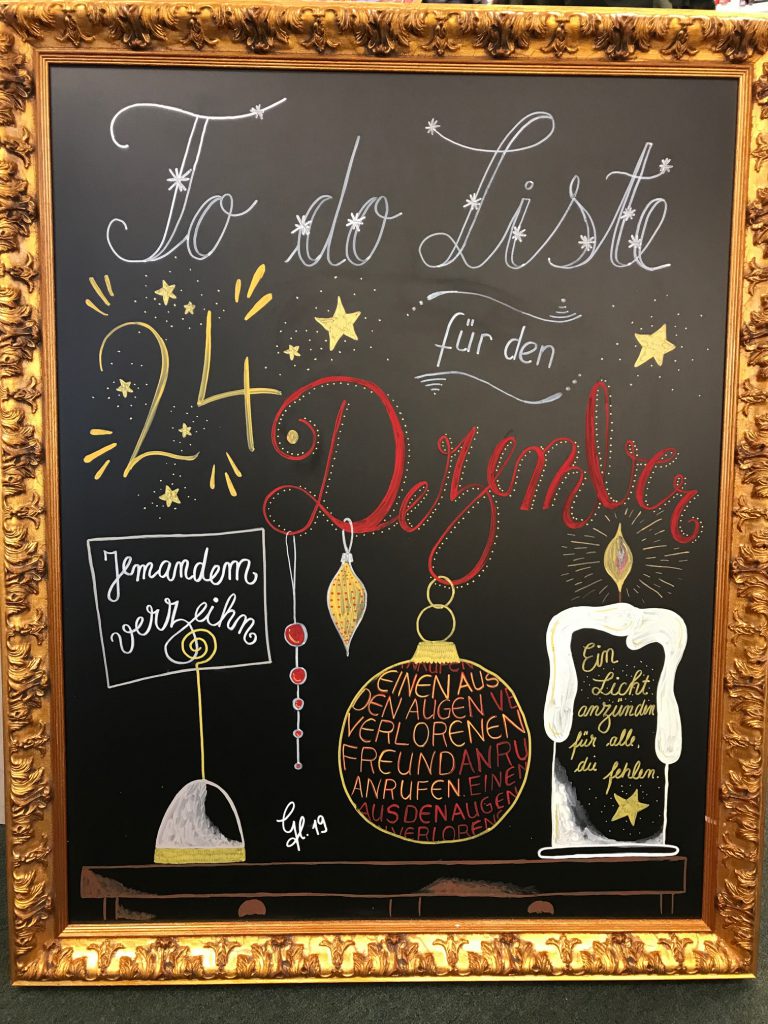 To do Liste
für den
24
Dezember
Jemandem
verzeihn
ANRUFEN
EINEN AUS
DEN AUGEN VE
VERLORENEN
FREUND ANRU
ANRUFEN. EINEN
AUS DEN AUGEN
VERLORENE
Ein
Licht
anzünden
für alle,
die fehlen.
19